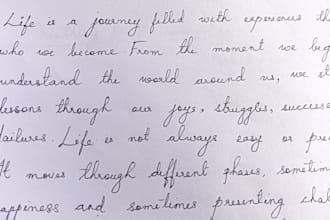 Life is a journey filled with experiences th
who we become From the moment we beg
understand the world around us, we st
lessons through our joys, struggles, successe
failures. Life is not always easy or pre
It moves through different phases, sometim
appiness and sometimes presenting chal